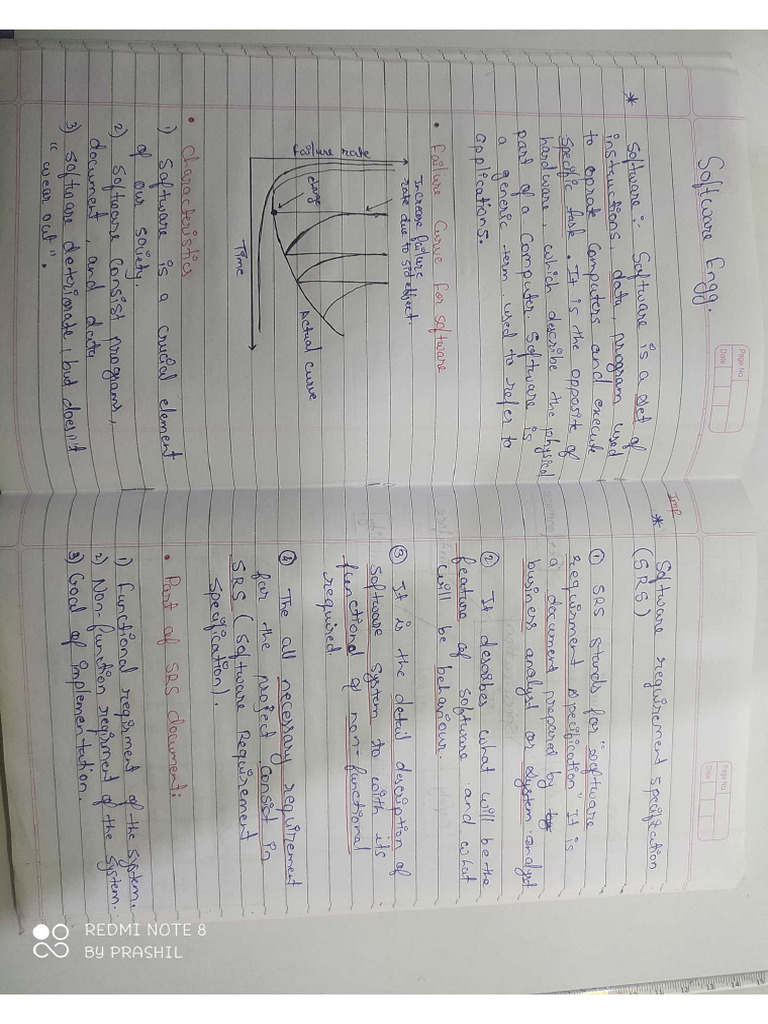 Software Engg.
Page No
Date
* Software :- Software is a set of
instructions, data, program used
to oprate computers and execute
specific task. It is the opposite of
hardware, which describe the physical
part of a computer. Software is
a generic term used to refer to
applications.
• Failure Curve for software
Increase failure
rate due to sid effect.
Failure rate
change
Actual curve
Time
• Characteristics
1) Software is a crucial element
of our society.
2) Software consist programs,
document, and data
3) Software deteriorate, but doesn't
"wear out".
Page No
Date
Imp
* Software requirement specification
(SRS)
① SRS stands for "software
requirment specification" It is
a document prepared by
business analyst or system analyst
② It describes what will be the
feature of software and what
will be behaviour.
③ It is the detail description of
software system to with its
functional & non-functional
required.
④ The all necessary requirement
for the project consist in
SRS (Software Requirement
Specification).
• Part of SRS document:
1) Functional reqirment of the system.
2) Non-function reqirment of the system.
3) Goal of implementation.
REDMI NOTE 8
BY PRASHIL